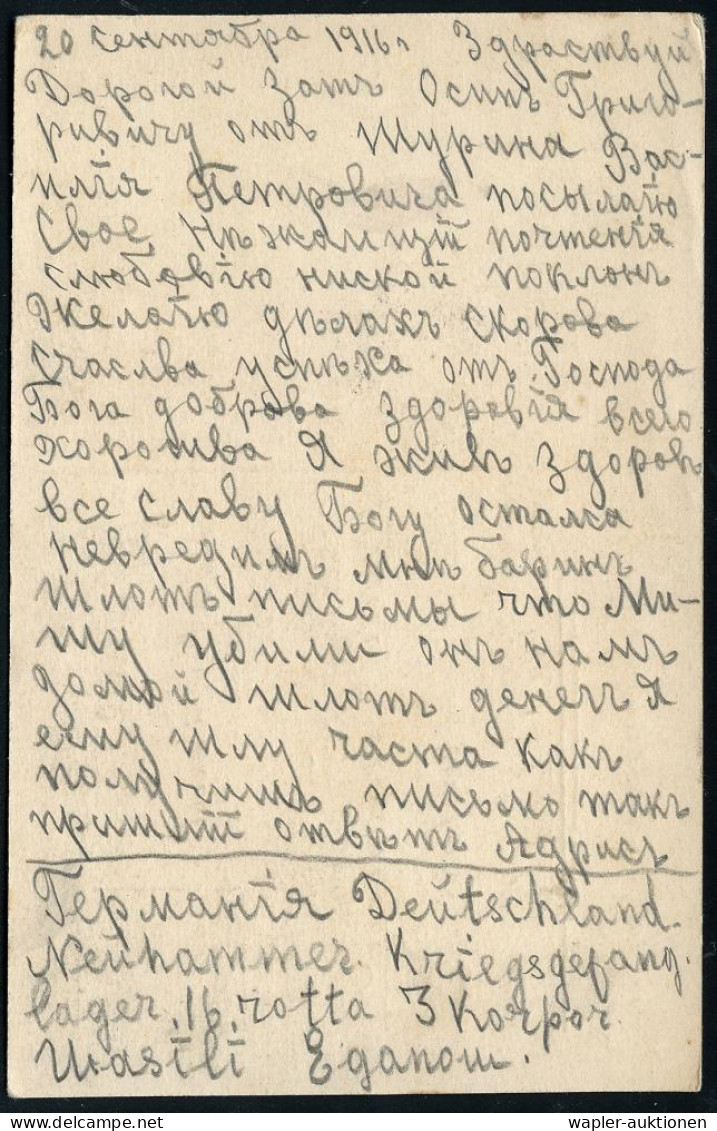 20 сентября 1916 г Здраствуй
Дорогой Зать Осипъ Григо-
ривичу отъ Шурина Вас-
илія Петровича посылаію
Свое нѣжаищій почтенія
слюбовію ниской поклонъ
Желаію дѣлахъ скорова
счаслва успѣха отъ Господа
Бога доброва здоровія всего
хорошва Я живъ здоровъ
все славу Богу осталса
невредимъ мнѣ баринъ
шлотъ письмы что Ми-
шу убили онъ намъ
домой шлотъ денегъ Я
ему шлу часта какъ
получишъ письмо такъ
пришій отвѣтъ Адрисъ
Германія Deütschland.
Neühammer. Kriegsgefang.
lager. 16. rotta 3 Korpor.
Wasili Edanow.
wapler-auktionen